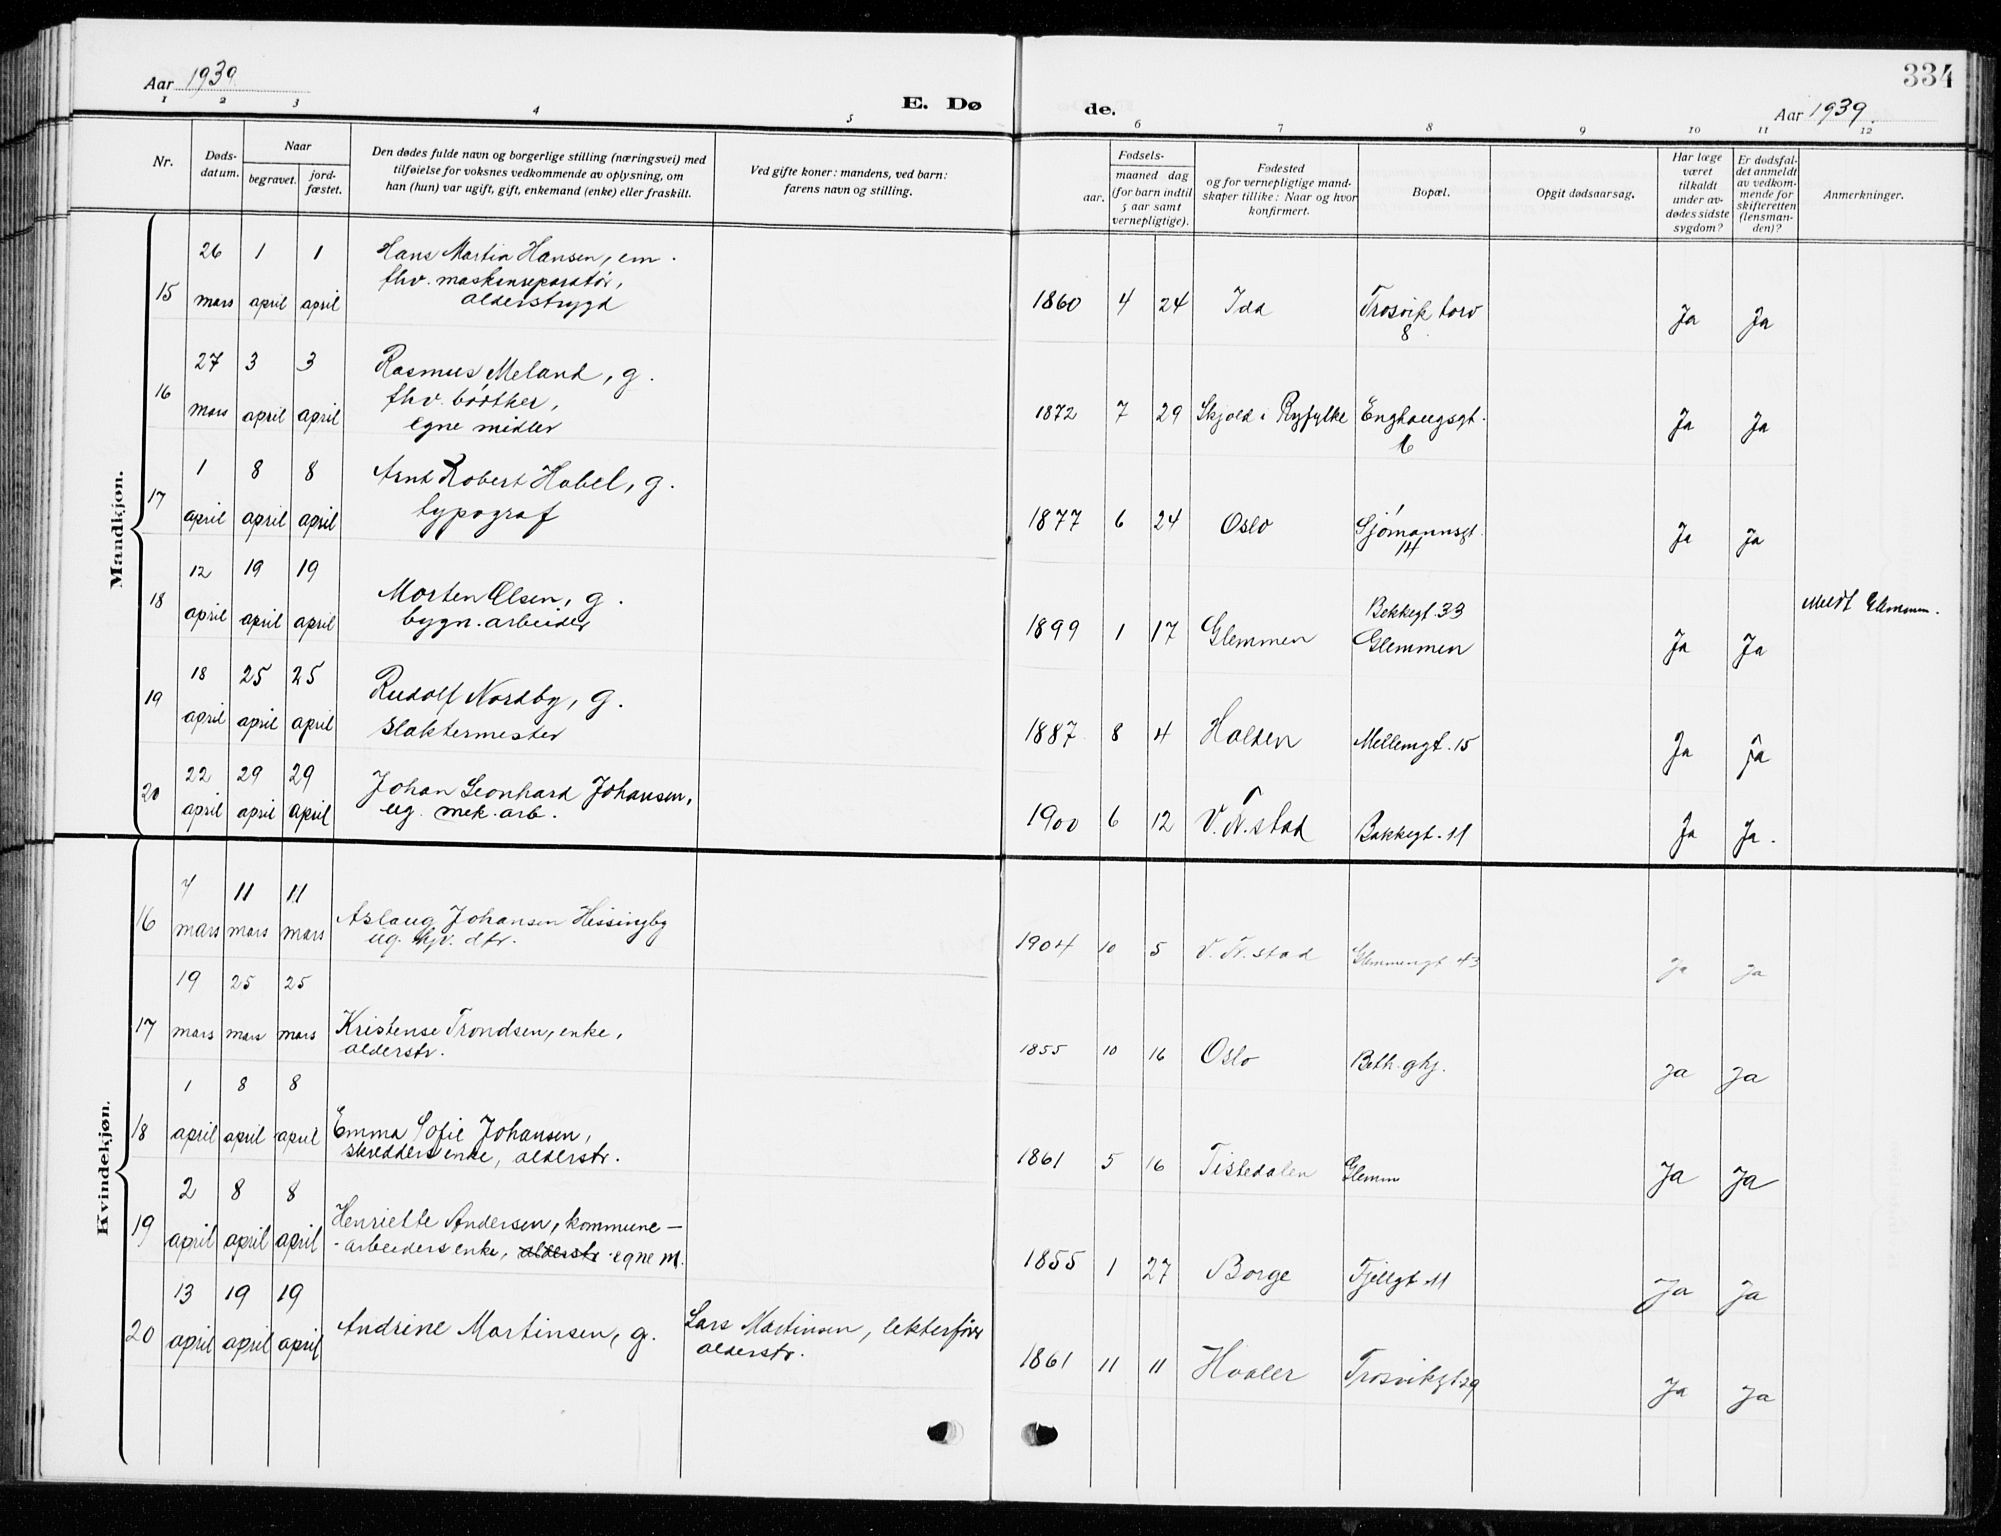 334
Aar 1939.
E. Døde.
Aar 1939.
1 2 3 4 5 6 7 8 9 10 11 12
Nr.
Døds-
datum.
Naar
begravet.
jord-
fæstet.
Den dødes fulde navn og borgerlige stilling (næringsvei) med
tilføielse for voksnes vedkommende av oplysning, om
han (hun) var ugift, gift, enkemand (enke) eller fraskilt.
Ved gifte koner: mandens, ved barn:
farens navn og stilling.
Fødsels-
aar. maaned dag
(for barn indtil
5 aar samt
vernepligtige).
Fødested
og for vernepligtige mand-
skaper tillike: Naar og hvor
konfirmert.
Bopæl.
Opgit dødsaarsag.
Har læge
været
tilkaldt
under av-
dødes sidste
sygdom?
Er dødsfal-
det anmeldt
av vedkom-
mende for
skifteretten
(lensman-
den)?
Anmerkninger.
Mandkjøn.
15 26 mars 1 april 1 april Hans Martin Hansen, em.
fhv. maskinreparatør,
alderstrygd
1860 4 24 Idd Trosvik torv
8 Ja Ja
16 27 mars 3 april 3 april Rasmus Meland, g.
fhv. bødtker,
egne midler
1872 7 29 Skjold i Ryfylke Enghaugsgt.
Ja Ja
17 1 april 8 april 8 april Arnt Robert Habel, g.
typograf
1877 6 24 Oslo Sjømannsgt.
14 Ja Ja
18 12 april 19 april 19 april Morten Olsen, g.
bygn. arbeider
1899 1 17 Glemmen Bekkegt 33
Glemmen Ja Ja Meldt Glemmen.
19 18 april 25 april 25 april Rudolf Nordby, g.
slaktermester
1887 8 4 Halden Mellemgt. 15 Ja Ja
20 22 april 29 april 29 april Johan Leonhard Johansen,
ug. mek. arb.
1900 6 12 V. Fr.stad Bakkegt. 11 Ja Ja.
Kvindekjøn.
16 7 mars 11 mars 11 mars Aslaug Johansen Hissingby
ug. hjv. dtr.
1904 10 5 V. Fr.stad Glemmengt 43 Ja Ja
17 19 mars 25 mars 25 mars Kristense Trondsen, enke,
alderstr.
1855 10 16 Oslo Beth. ghj. Ja Ja
18 1 april 8 april 8 april Emma Sofie Johansen,
skredders enke, alderstr.
1861 5 16 Tistedalen Glemm Ja Ja
19 2 april 8 april 8 april Henriette Andersen, kommune-
-arbeiders enke, alderstr. egne m.
1855 1 27 Borge Fjellgt 11 Ja Ja
20 13 april 19 april 19 april Andrine Martinsen, g. Lars Martinsen, lekterfører
alderstr.
1861 11 11 Hvaler Trosvikgt 29 Ja Ja